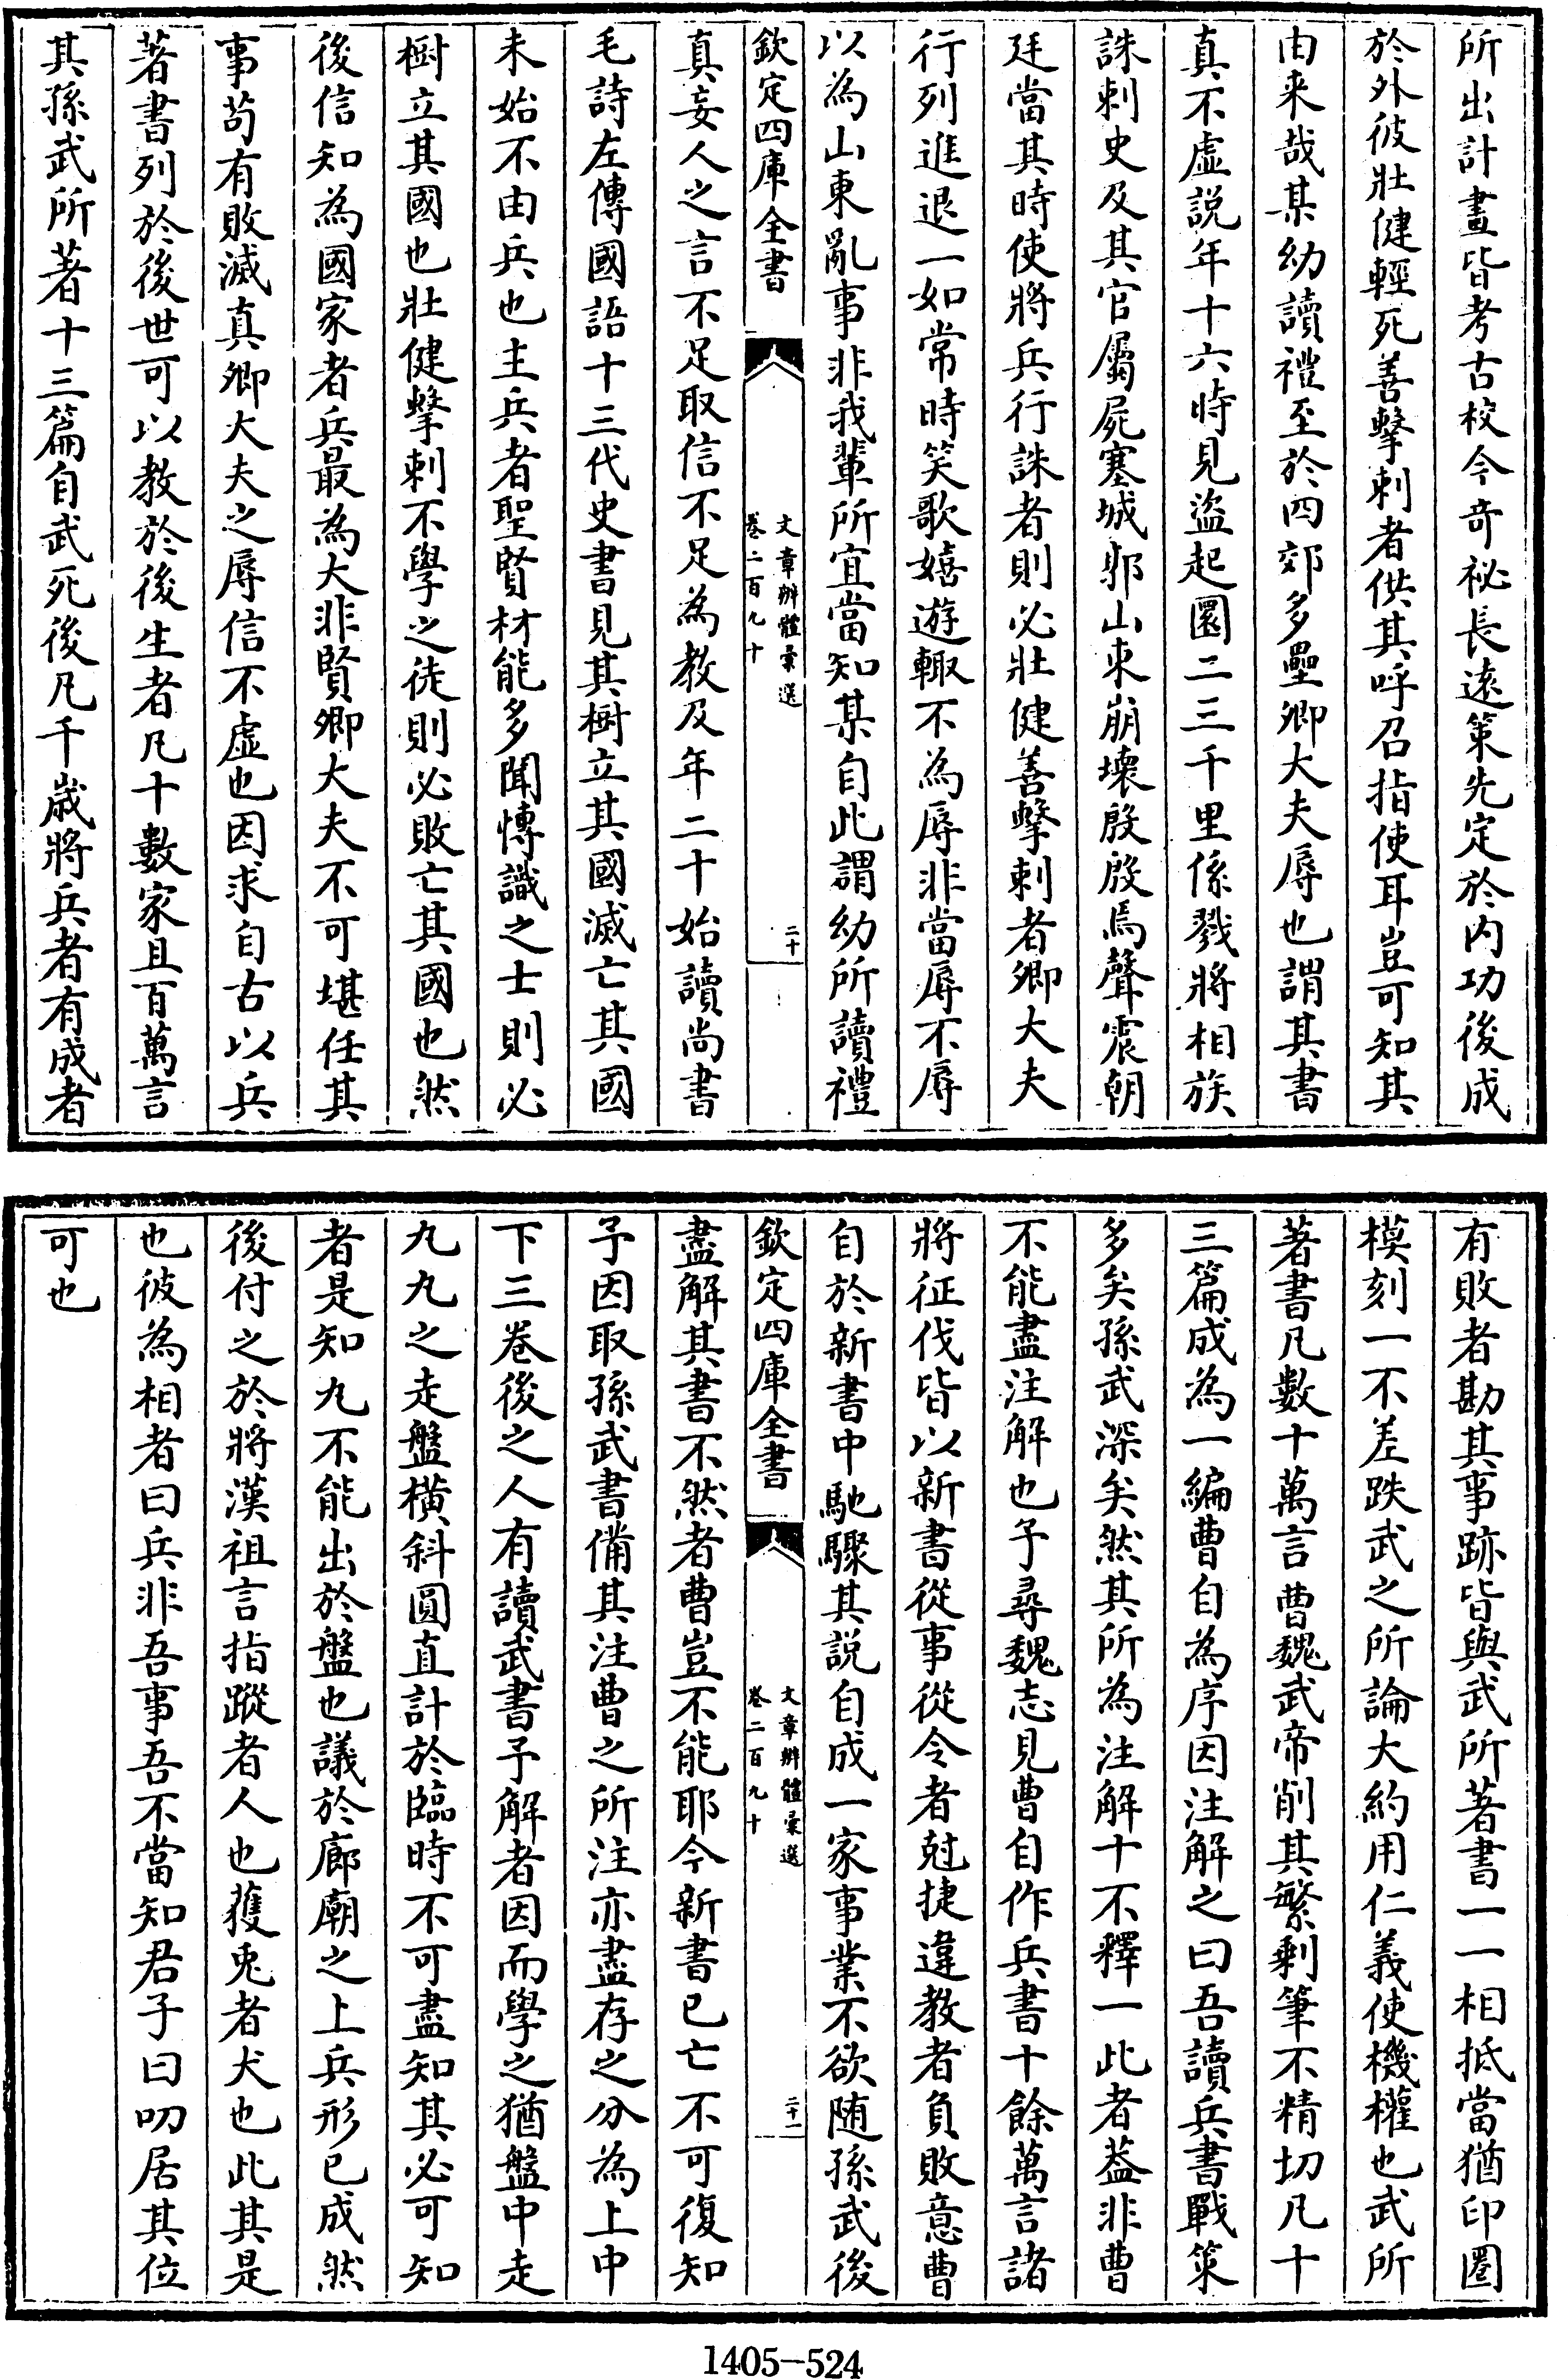 所出計畫皆考古校今奇祕長遠策先定於内功後成
於外彼壯健輕死善擊刺者供其呼召指使耳豈可知其
由来哉某幼讀禮至於四郊多壘卿大夫辱也謂其書
真不虛説年十六時見盜起圜二三千里係戮將相族
誅刺史及其官屬屍塞城郭山東崩壊殷殷焉聲震朝
廷當其時使將兵行誅者則必壯健善擊刺者卿大夫
行列進退一如常時笑歌嬉遊輙不為辱非當辱不辱
以為山東亂事非我輩所宜當知某自此謂幼所讀禮
欽定四庫全書
文章辨體彙選
卷二百九十
二十
真妄人之言不足取信不足為教及年二十始讀尚書
毛詩左傳國語十三代史書見其樹立其國滅亡其國
未始不由兵也主兵者聖賢材能多聞博識之士則必
樹立其國也壯健擊刺不學之徒則必敗亡其國也然
後信知為國家者兵最為大非賢卿大夫不可堪任其
事苟有敗滅真卿大夫之辱信不虛也因求自古以兵
著書列於後世可以教於後生者凡十數家且百萬言
其孫武所著十三篇自武死後凡千歲將兵者有成者
有敗者勘其事跡皆與武所著書一一相抵當猶印圏
模刻一不差跌武之所論大約用仁義使機權也武所
著書凡數十萬言曹魏武帝削其繁剩筆不精切凡十
三篇成為一編曹自為序因注解之曰吾讀兵書戰策
多矣孫武深矣然其所為注解十不釋一此者葢非曹
不能盡注解也予尋魏志見曹自作兵書十餘萬言諸
將征伐皆以新書從事從令者尅捷違教者負敗意曹
自於新書中馳驟其説自成一家事業不欲随孫武後
欽定四庫全書
文章辨體彙選
卷二百九十
二十一
盡解其書不然者曹豈不能耶今新書已亡不可復知
予因取孫武書備其注曹之所注亦盡存之分為上中
下三卷後之人有讀武書予解者因而學之猶盤中走
丸丸之走盤橫斜圓直計於臨時不可盡知其必可知
者是知丸不能出於盤也議於廊廟之上兵形已成然
後付之於將漢祖言指蹤者人也獲兎者犬也此其是
也彼為相者曰兵非吾事吾不當知君子曰叨居其位
可也
1405-524